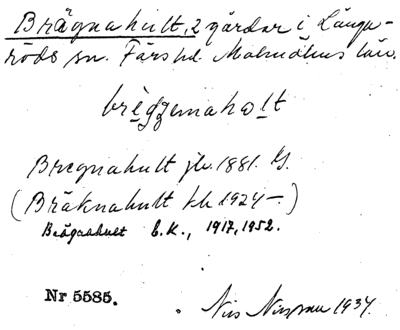 Brägnahult, 2 gårdar i Långa-
röds sn. Färs hd. Malmöhus län.
Bregnahult jb. 1881.
(Bräknahult tk 1924 —)
Brägnahult E.K., 1917, 1952.
Nr 5585.
Nils 1934.